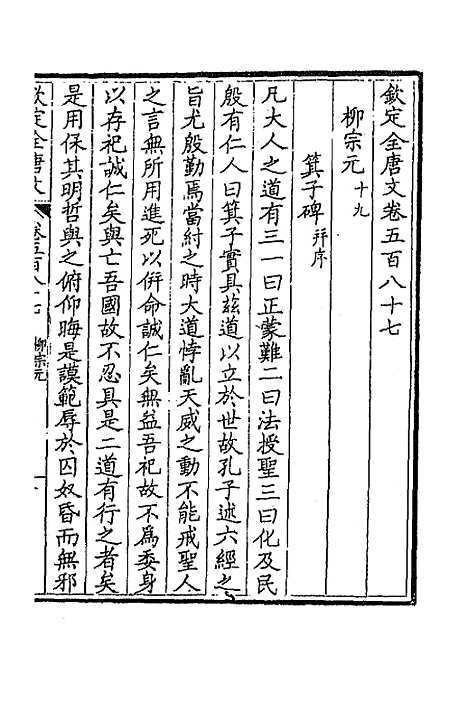 欽定全唐文卷五百八十七
柳宗元十九
箕子碑并序
凡大人之道有三一曰正蒙難二曰法授聖三曰化及民
殷有仁人曰箕子實具茲道以立於世故孔子述六經之
旨尤殷勤焉當紂之時大道悖亂天威之動不能戒聖人
之言無所用進死以併命誠仁矣無益吾祀故不為委身
以存祀誠仁矣與亡吾國故不忍具是二道有行之者矣
是用保其明哲與之俯仰晦是謨範辱於囚奴昏而無邪
欽定全唐文
卷五百八十七
柳宗元
一